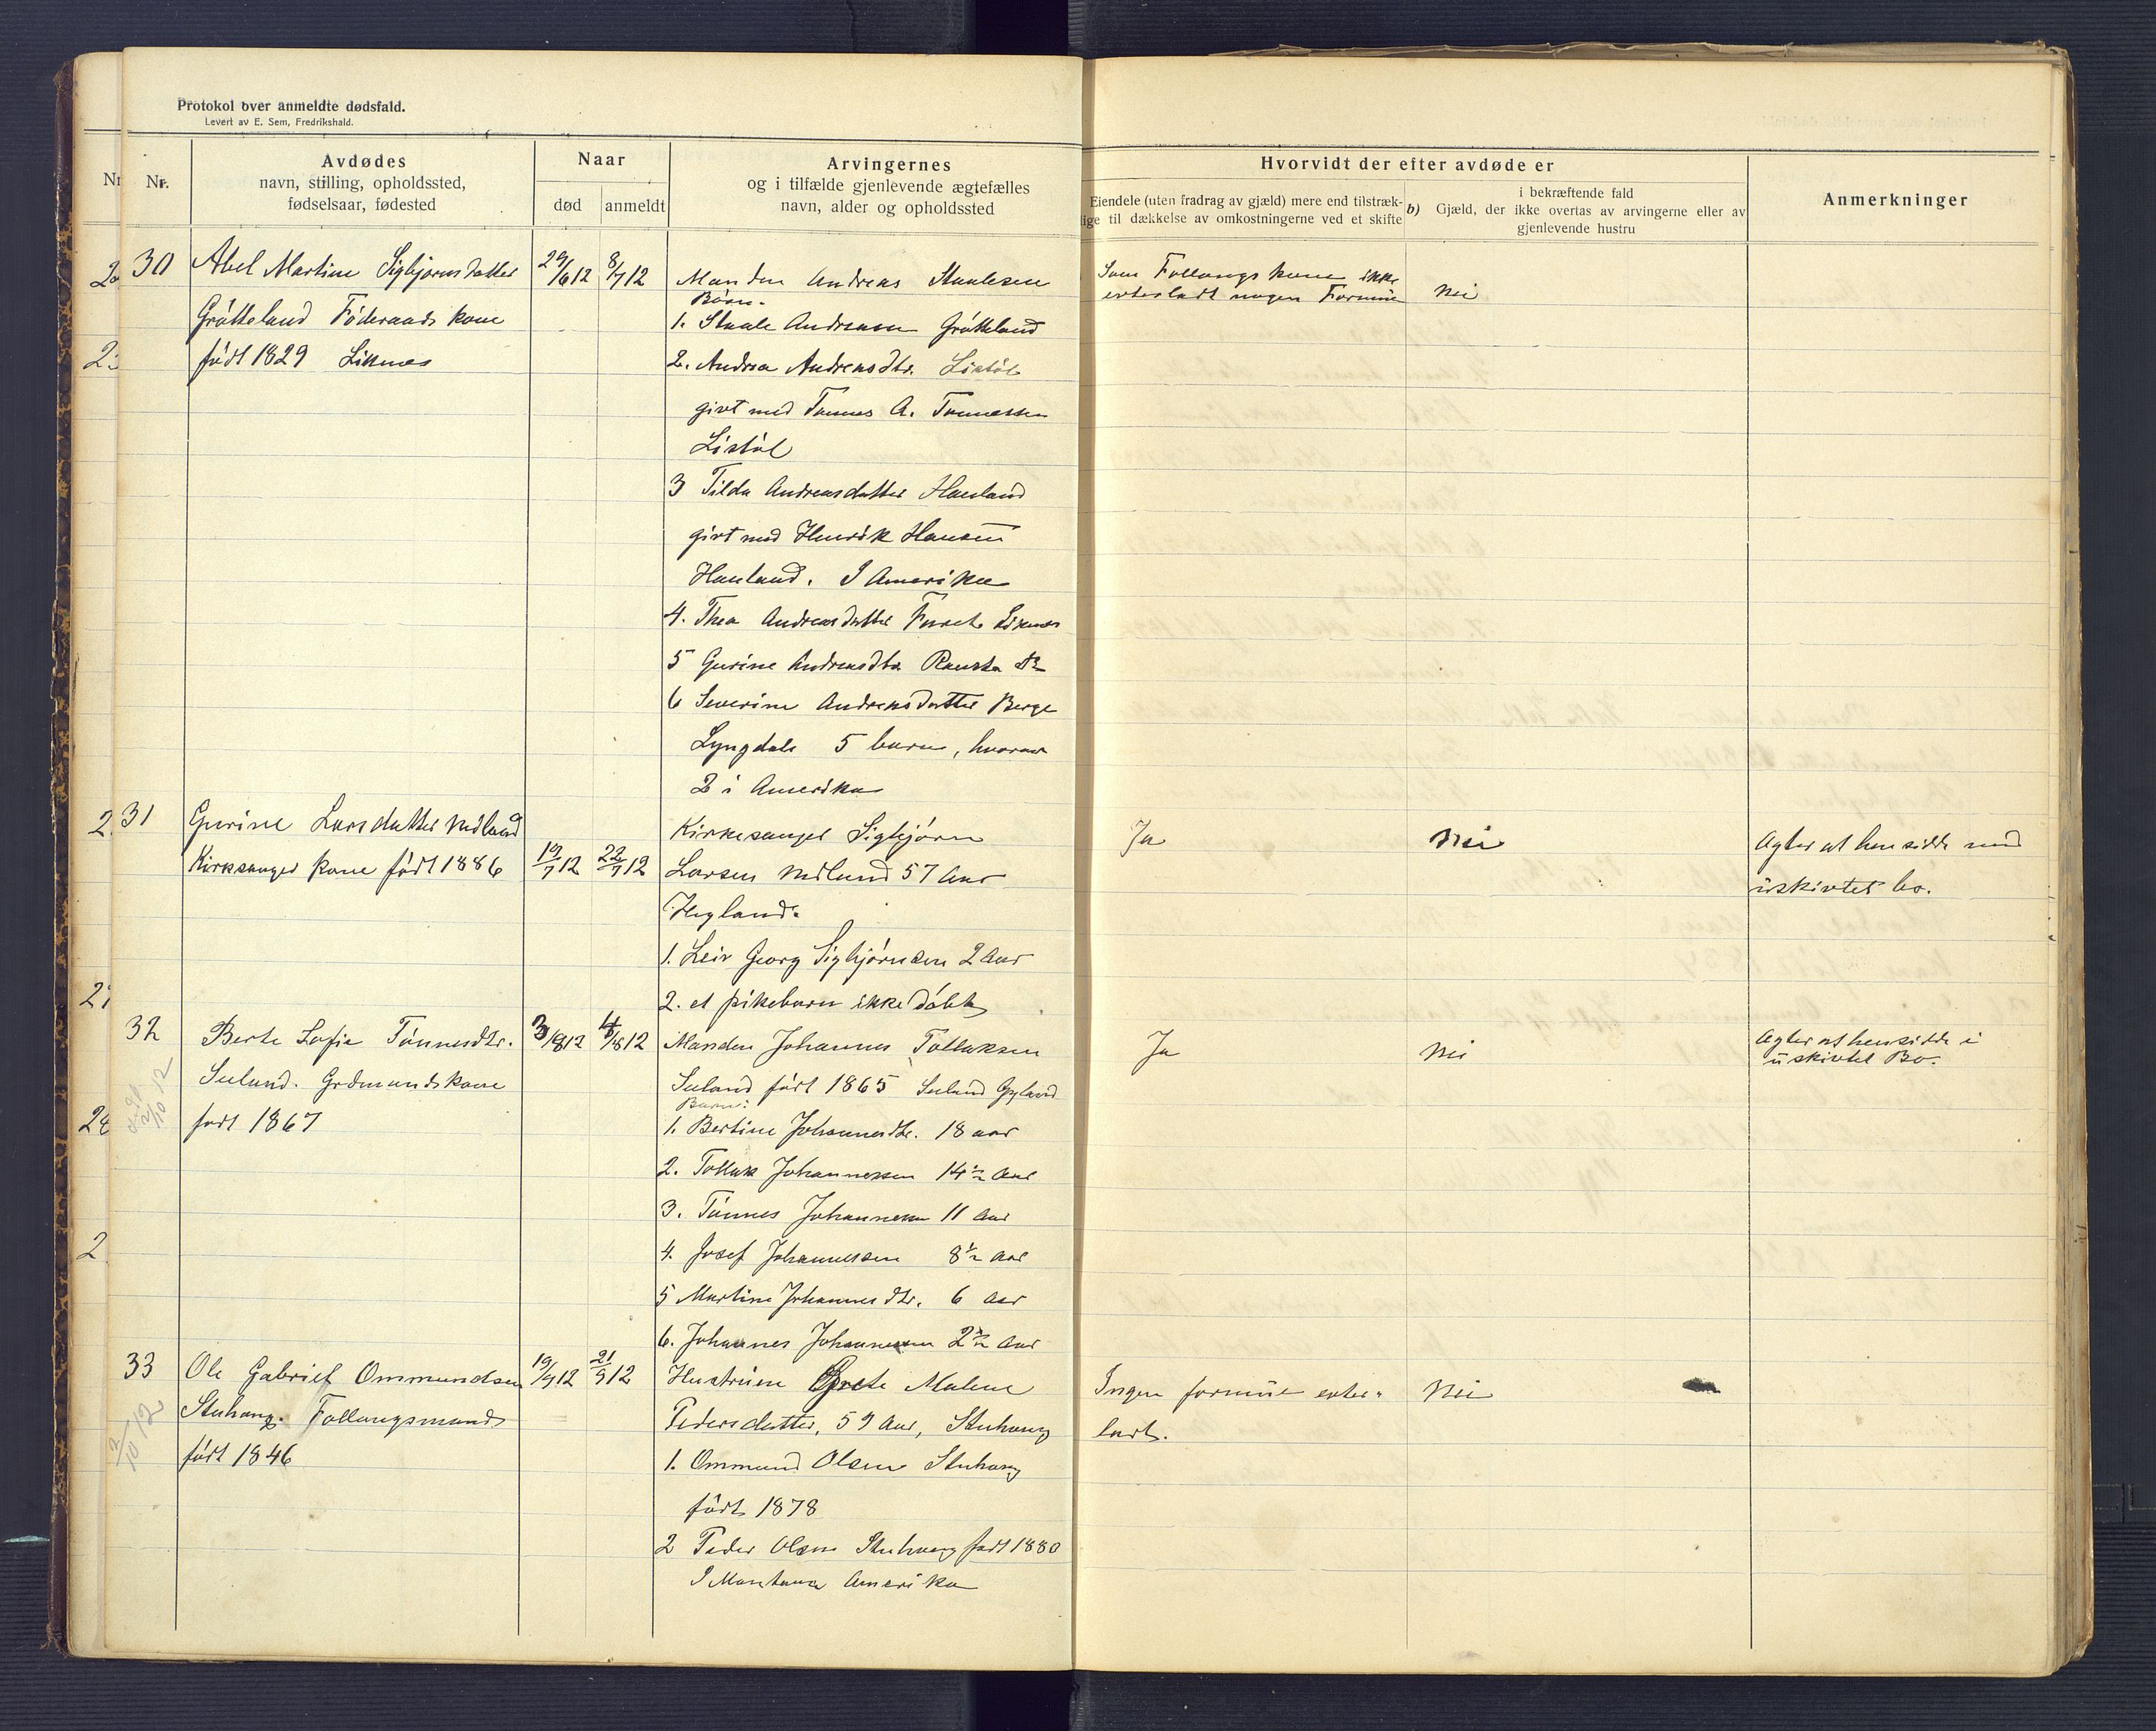 Protokol over anmeldte dødsfald.
Levert av E. Sem, Fredrikshald.
Nr.
Avdødes
navn, stilling, opholdssted,
fødselsaar, fødested
Naar
død
anmeldt
Arvingernes
og i tilfælde gjenlevende ægtefælles
navn, alder og opholdssted
Hvorvidt der efter avdøde er
Eiendele (uten fradrag av gjæld) mere end tilstræk-
lige til dækkelse av omkostningerne ved et skifte
b)
i bekræftende fald
Gjæld, der ikke overtas av arvingerne eller av
gjenlevende hustru
Anmerkninger
30
Abel Martine Sigbjørnsdatter
Gråtteland Föderaads kone
født 1829 Liknes
29/6 12
8/7 12
Manden Andreas Staalesen
Börn.
1. Staale Andreasen Gråtteland
2. Andrea Andreasdtr. Listöl
givt med Tønnes A. Tønnessen
Listöl
3 Tilda Andreasdatter Hauland
givt med Henrik Hansen
Hauland. I Amerika
4. Thea Andreasdatter Liknes
5 Gurine Andreasdtr.
6 Severine Andreasdatter Berge
Lyngdal 5 barn, hvorav
2 i Amerika
Som Follougs kone ikke
efterladt nogen Formue
Nei
31
Gurine Larsdatter Midland
Kirksanger kone født 1886
19/7 12
22/7 12
Kirkesanger Sigbjörn
Larsen Midland 57 Aar
Hegland.
1. Leiv Georg Sigbjörnsen 2 Aar
2. et pikebarn ikke döbt
Ja
Nei
Agter at hensidde med
uskivtet bo.
32
Berte Sofie Tönnesdtr.
Seland. Grdmands kone
født 1867
3/8 12
4/8 12
Manden Johannes Tollaksen
Seland født 1865 Seland Gyland
Barn:
1. Bertine Johannesdtr. 18 aar
2. Tollak Johannessen 14½ Aar
3. Tönnes Johannessen 11 Aar
4. Josef Johannessen 8½ Aar
5 Martine Johannesdtr. 6 Aar
6. Johannes Johannessen 2½ Aar
Ja
Nei
Agter at hensidde i
uskivtet Bo.
33
2/10 12
Ole Gabrief Ommundsen
Stuhaug. Follougsmand
født 1846
19/9 12
21/9 12
Hustruen Grete Malene
Pedersdatter, 59 Aar, Stuhaug
1. Ommund Olsen Stuhaug
født 1878
2 Peder Olsen Stuhaug født 1880
I Montana Amerika
Ingen formue efter-
ladt.
Nei